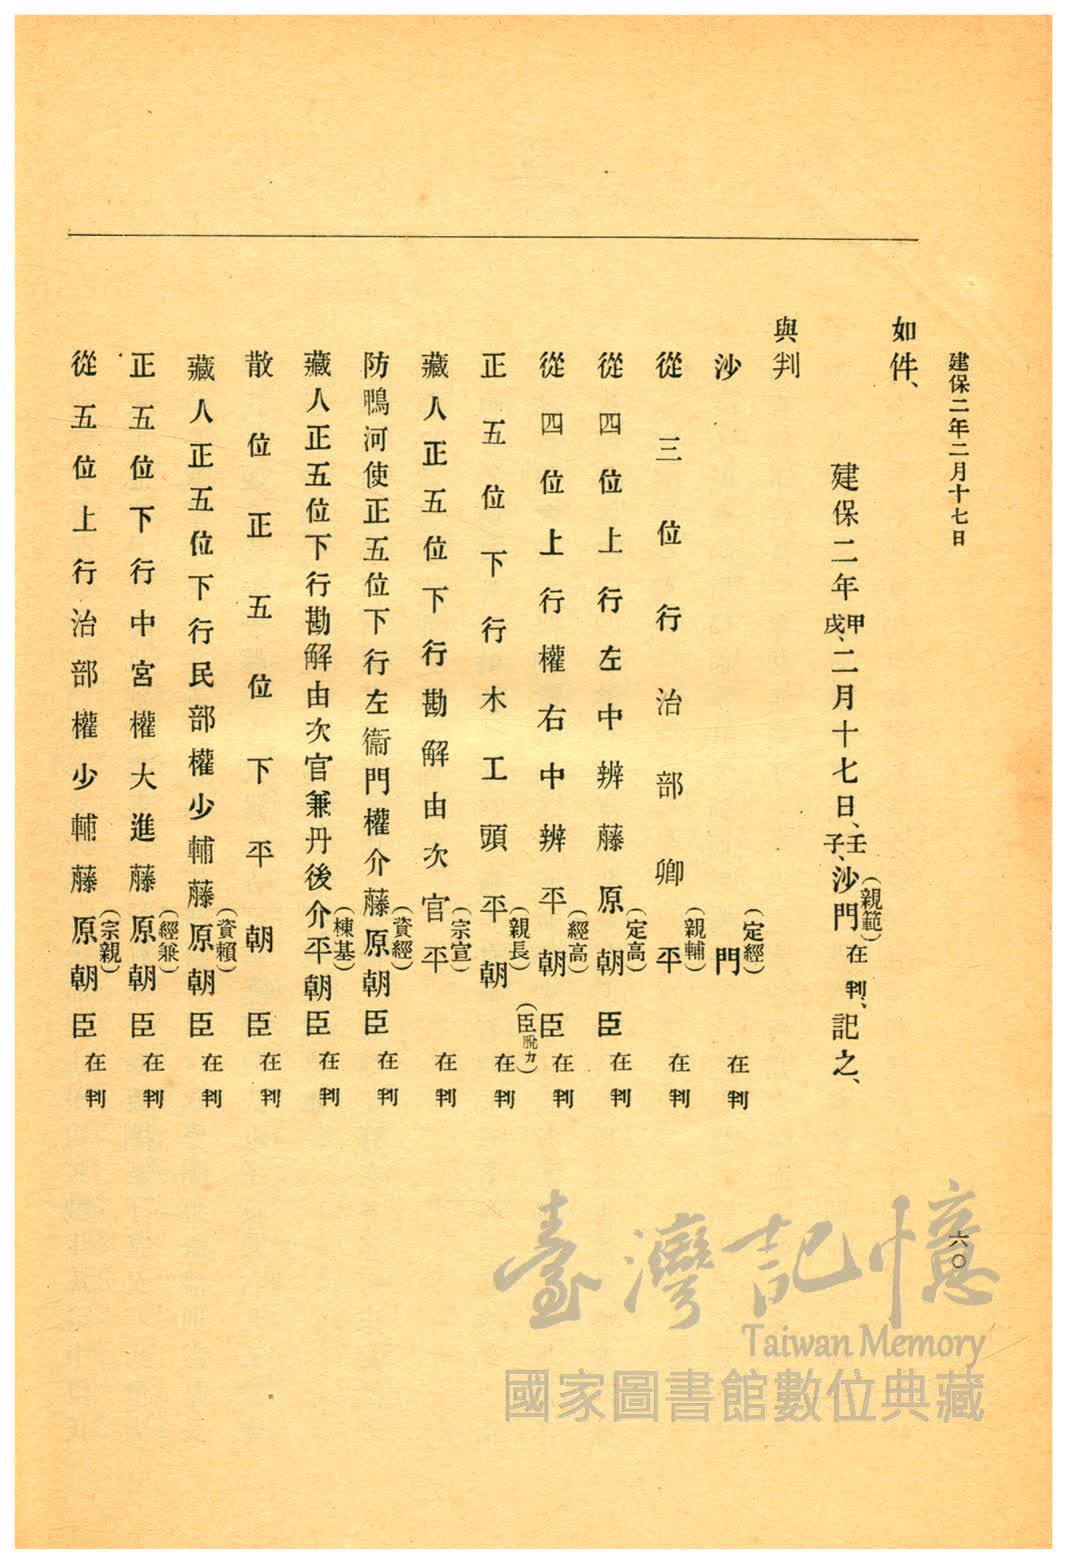 建保二年二月十七日
六〇
如件、
建保二年甲戌、二月十七日、壬子、沙門(親範)在判、記之、
與判
沙門(定經)在判
從三位行治部卿平(親輔)在判
從四位上行左中辨藤原朝臣(定高)在判
從四位上行權右中辨平朝臣(經高)在判
正五位下行木工頭平朝(親長)(臣脫カ)在判
藏人正五位下行勘解由次官平(宗宣)在判
防鴨河使正五位下行左衞門權介藤原朝臣(資經)在判
藏人正五位下行勘解由次官兼丹後介平朝臣(棟基)在判
散位正五位下平朝臣在判
藏人正五位下行民部權少輔藤原朝臣(資賴)在判
正五位下行中宮權大進藤原朝臣(經兼)在判
從五位上行治部權少輔藤原朝臣(宗親)在判
臺灣記憶
Taiwan Memory
國家圖書館數位典藏